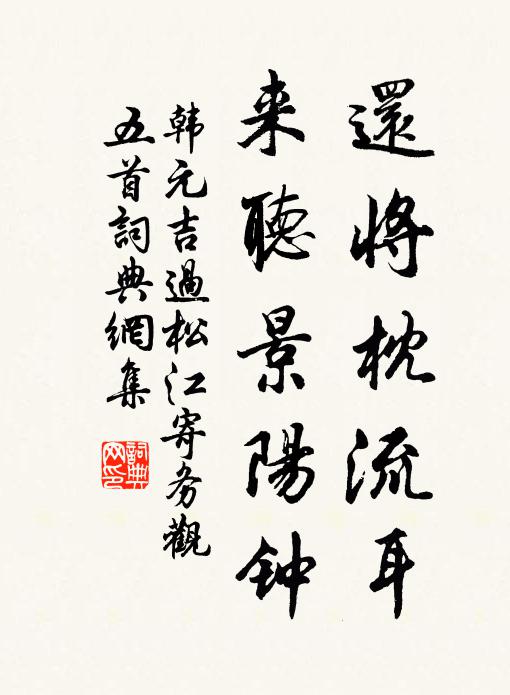 還將枕流耳
来聽景陽钟
韩元吉過松江寄务觀
五首詞典網集
詞典网印